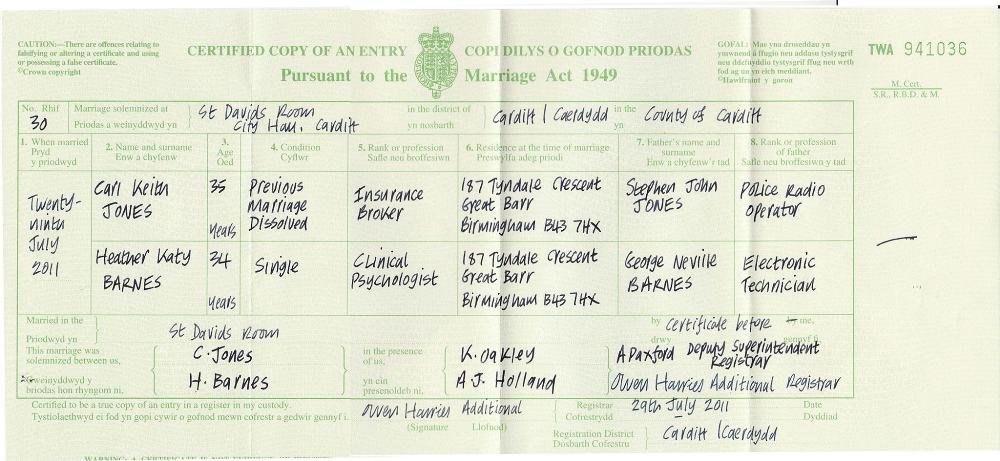 CAUTION:—There are offences relating to
falsifying or altering a certificate and using
or possessing a false certificate.
©Crown copyright
CERTIFIED COPY OF AN ENTRY
Pursuant to the
COPI DILYS O GOFNOD PRIODAS
Marriage Act 1949
GOFAL: Mae yna droseddau yn
ymwneud â ffugio neu addasu tystysgrif
neu ddefnyddio tystysgrif ffug neu wrth
fod ag un yn eich meddiant.
©Hawlfraint y goron
TWA 941036
M. Cert.
S.R., R.B.D. & M.
No. Rhif 30
Marriage solemnized at
Priodas a weinyddwyd yn
St Davids Room
City Hall, Cardiff
in the district of
yn nosbarth
Cardiff | Caerdydd
in the
yn
County of Cardiff
1. When married
Pryd
y priodwyd
2. Name and surname
Enw a chyfenw
3.
Age
Oed
4. Condition
Cyflwr
5. Rank or profession
Safle neu broffesiwn
6. Residence at the time of marriage
Preswylfa adeg priodi
7. Father's name and
surname
Enw a chyfenw'r tad
8. Rank or profession
of father
Safle neu broffesiwn y tad
Twenty-
ninth
July
2011
Carl Keith
JONES
35
years
Previous
Marriage
Dissolved
Insurance
Broker
187 Tyndale Crescent
Great Barr
Birmingham B43 7HX
Stephen John
JONES
Police Radio
operator
Heather Katy
BARNES
34
years
Single
Clinical
Psychologist
187 Tyndale Crescent
Great Barr
Birmingham B43 7HX
George Neville
BARNES
Electronic
Technician
Married in the
Priodwyd yn
St Davids Room
by
drwy
certificate before
me,
gennyf i,
This marriage was
solemnized between us,
Gweinyddwyd y
briodas hon rhyngom ni,
C. Jones
H. Barnes
in the presence
of us,
yn ein
presenoldeb ni,
K. Oakley
A.J. Holland
A Paxford Deputy Superintendent
Registrar
Owen Harries Additional Registrar
Certified to be a true copy of an entry in a register in my custody.
Tystiolaethwyd ei fod yn gopi cywir o gofnod mewn cofrestr a gedwir gennyf i.
Owen Harries Additional
(Signature Llofnod)
Registrar
Cofrestrydd
29th July 2011
Date
Dyddiad
Registration District
Dosbarth Cofrestru
Cardiff | Caerdydd
WARNING: A CERTIFICATE IS NOT EVIDENCE OF